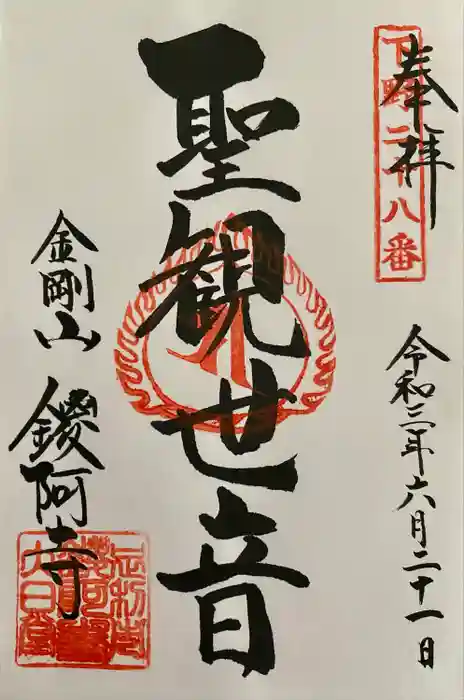 奉拝
下野二十八番
令和三年六月二十一日
聖観世音
金剛山 鑁阿寺